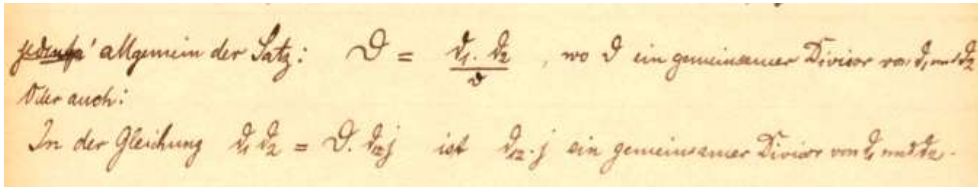 allgemein der Satz: 𝔇 = (𝔡₁ · 𝔡₂)/𝔡, wo 𝔡 ein gemeinsamer Divisor von 𝔡₁ und 𝔡₂
Oder auch:
In der Gleichung 𝔡₁ 𝔡₂ = 𝔇 · 𝔡₁₂ j ist 𝔡₁₂ · j ein gemeinsamer Divisor von 𝔡₁ und 𝔡₂.